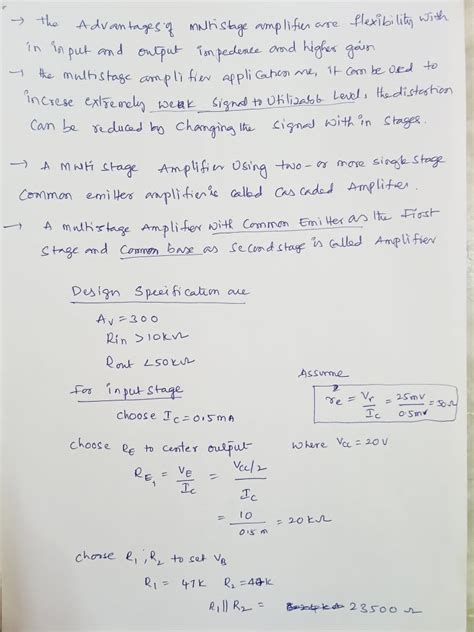 → the Advantages of multistage amplifier are flexibility with
in input and output impedence and higher gain
→ the multistage amplifier application are, it can be used to
increse extremely weak signal to Utilizabl Level, the distortion
can be reduced by changing the signal with in stages.
→ A Multi stage Amplifier Using two- or more single stage
Common emitter amplifier is called Cascaded Amplifier.
→ A multistage Amplifier with Common Emitter as the First
Stage and Common base as second stage is called Amplifier
Design Specification are
Av = 300
Rin > 10KΩ
Rout < 50KΩ
Assume
For input stage
choose Ic = 0.5mA
re = Vr/Ic = 25mV/0.5mv = 50Ω
choose RE to center output where Vcc = 20V
RE1 = VE/Ic = Vcc/2/Ic
= 10/0.5m = 20KΩ
choose R1, R2 to set VB
R1 = 47K R2 = 47K
R1||R2 = 23500Ω